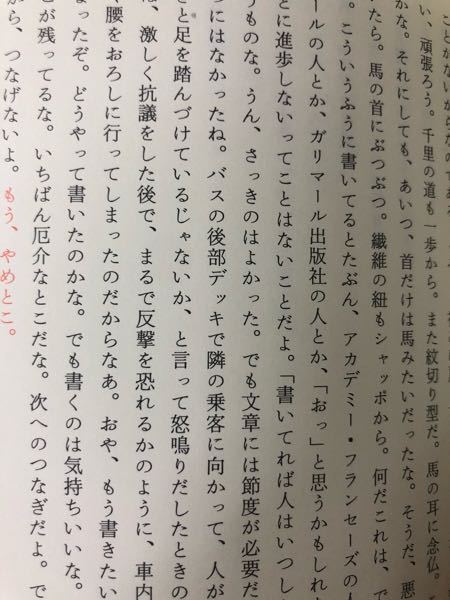 ことがないからなのである
い、頑張ろう。千里の道も一歩から。また紋切り型だ。馬の耳に念仏。
かな。それにしても、あいつ、首だけは馬みたいだったな。そうだ、悪
たら。馬の首にぶつぶつ。繊維の紐もシャッポから。何だこれは、で
。こういうふうに書いてるとたぶん、アカデミー・フランセーズの人
ールの人とか、ガリマール出版社の人とか、「おっ」と思うかもしれ
とに進歩しないってことはないことだよ。「書いてれば人はいつし
うものな。うん、さっきのはよかった。でも文章には節度が必要だ
うにはなかったね。バスの後部デッキで隣の乗客に向かって、人が
ざと足を踏んづけているじゃないか、と言って怒鳴りだしたときの
ね、激しく抗議をした後で、まるで反撃を恐れるかのように、車内
に腰をおろしに行ってしまったのだからなあ。おや、もう書きたい
まったぞ。どうやって書いたのかな。でも書くのは気持ちいいな。
とが残ってるな。いちばん厄介なとこだな。次へのつなぎだよ。で
から、つなげないよ。もう、やめとこ。